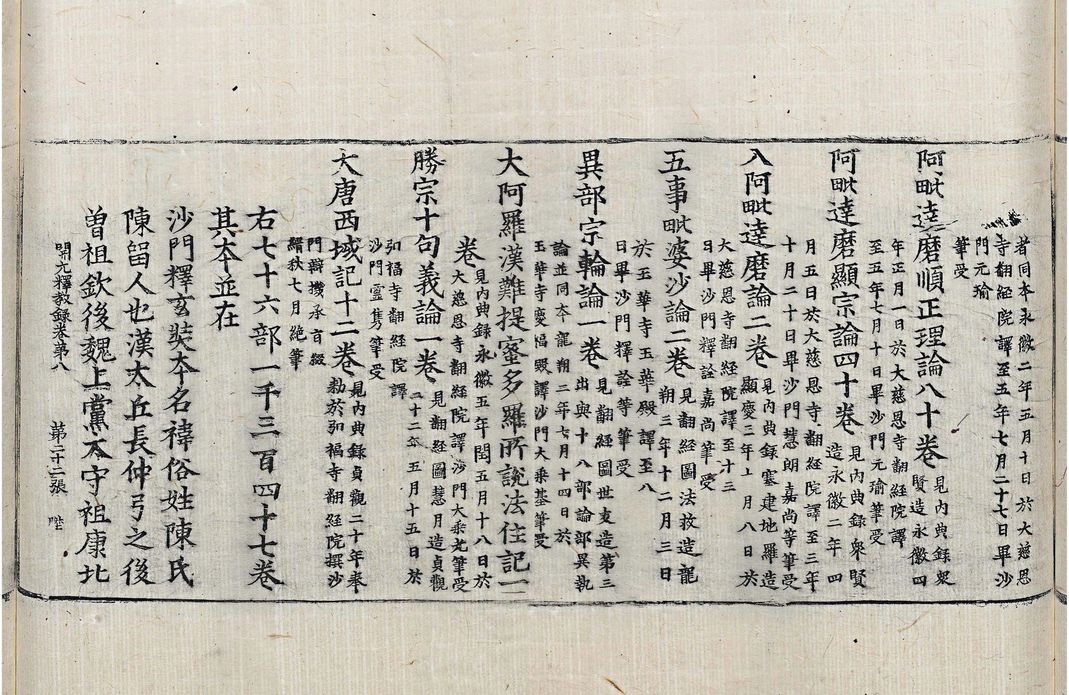 者同本永徽二年五月十日於大慈恩
寺翻經院譯至五年七月二十七日畢沙
門元瑜
筆受
阿毗達磨順正理論八十卷 見內典錄衆
賢造永徽四
年正月一日於大慈恩寺翻經院譯
至五年七月十日畢沙門元瑜筆受
阿毗達磨顯宗論四十卷 見內典錄衆賢
造永徽二年四
月五日於大慈恩寺翻經院譯至三年
十月二十日畢沙門慧朗嘉尚等筆受
入阿毗達磨論二卷 見內典錄塞建地羅造
顯慶三年十月八日於
大慈恩寺翻經院譯至十三
日畢沙門釋詮嘉尚筆受
五事毗婆沙論二卷 見翻經圖法救造龍
朔三年十二月三日
於玉華寺玉華殿譯至八
日畢沙門釋詮等筆受
異部宗輪論一卷 見翻經圖世友造第三
出與十八部論部異執
論並同本龍朔二年七月十四日於
玉華寺慶福殿譯沙門大乘基筆受
大阿羅漢難提蜜多羅所說法住記一
卷 見內典錄永徽五年閏五月十八日於
大慈恩寺翻經院譯沙門大乘光筆受
勝宗十句義論一卷 見翻經圖慧月造貞觀
二十二年五月十五日於
弘福寺翻經院譯
沙門靈雋筆受
大唐西域記十二卷 見內典錄貞觀二十年奉
勑於弘福寺翻經院撰沙
門辯機承旨綴
緝秋七月絕筆
右七十六部一千三百四十七卷
其本並在
沙門釋玄奘本名褘俗姓陳氏
陳留人也漢太丘長仲弓之後
曾祖欽後魏上黨太守祖康北
開元釋教錄卷第八 第二十二張 陛